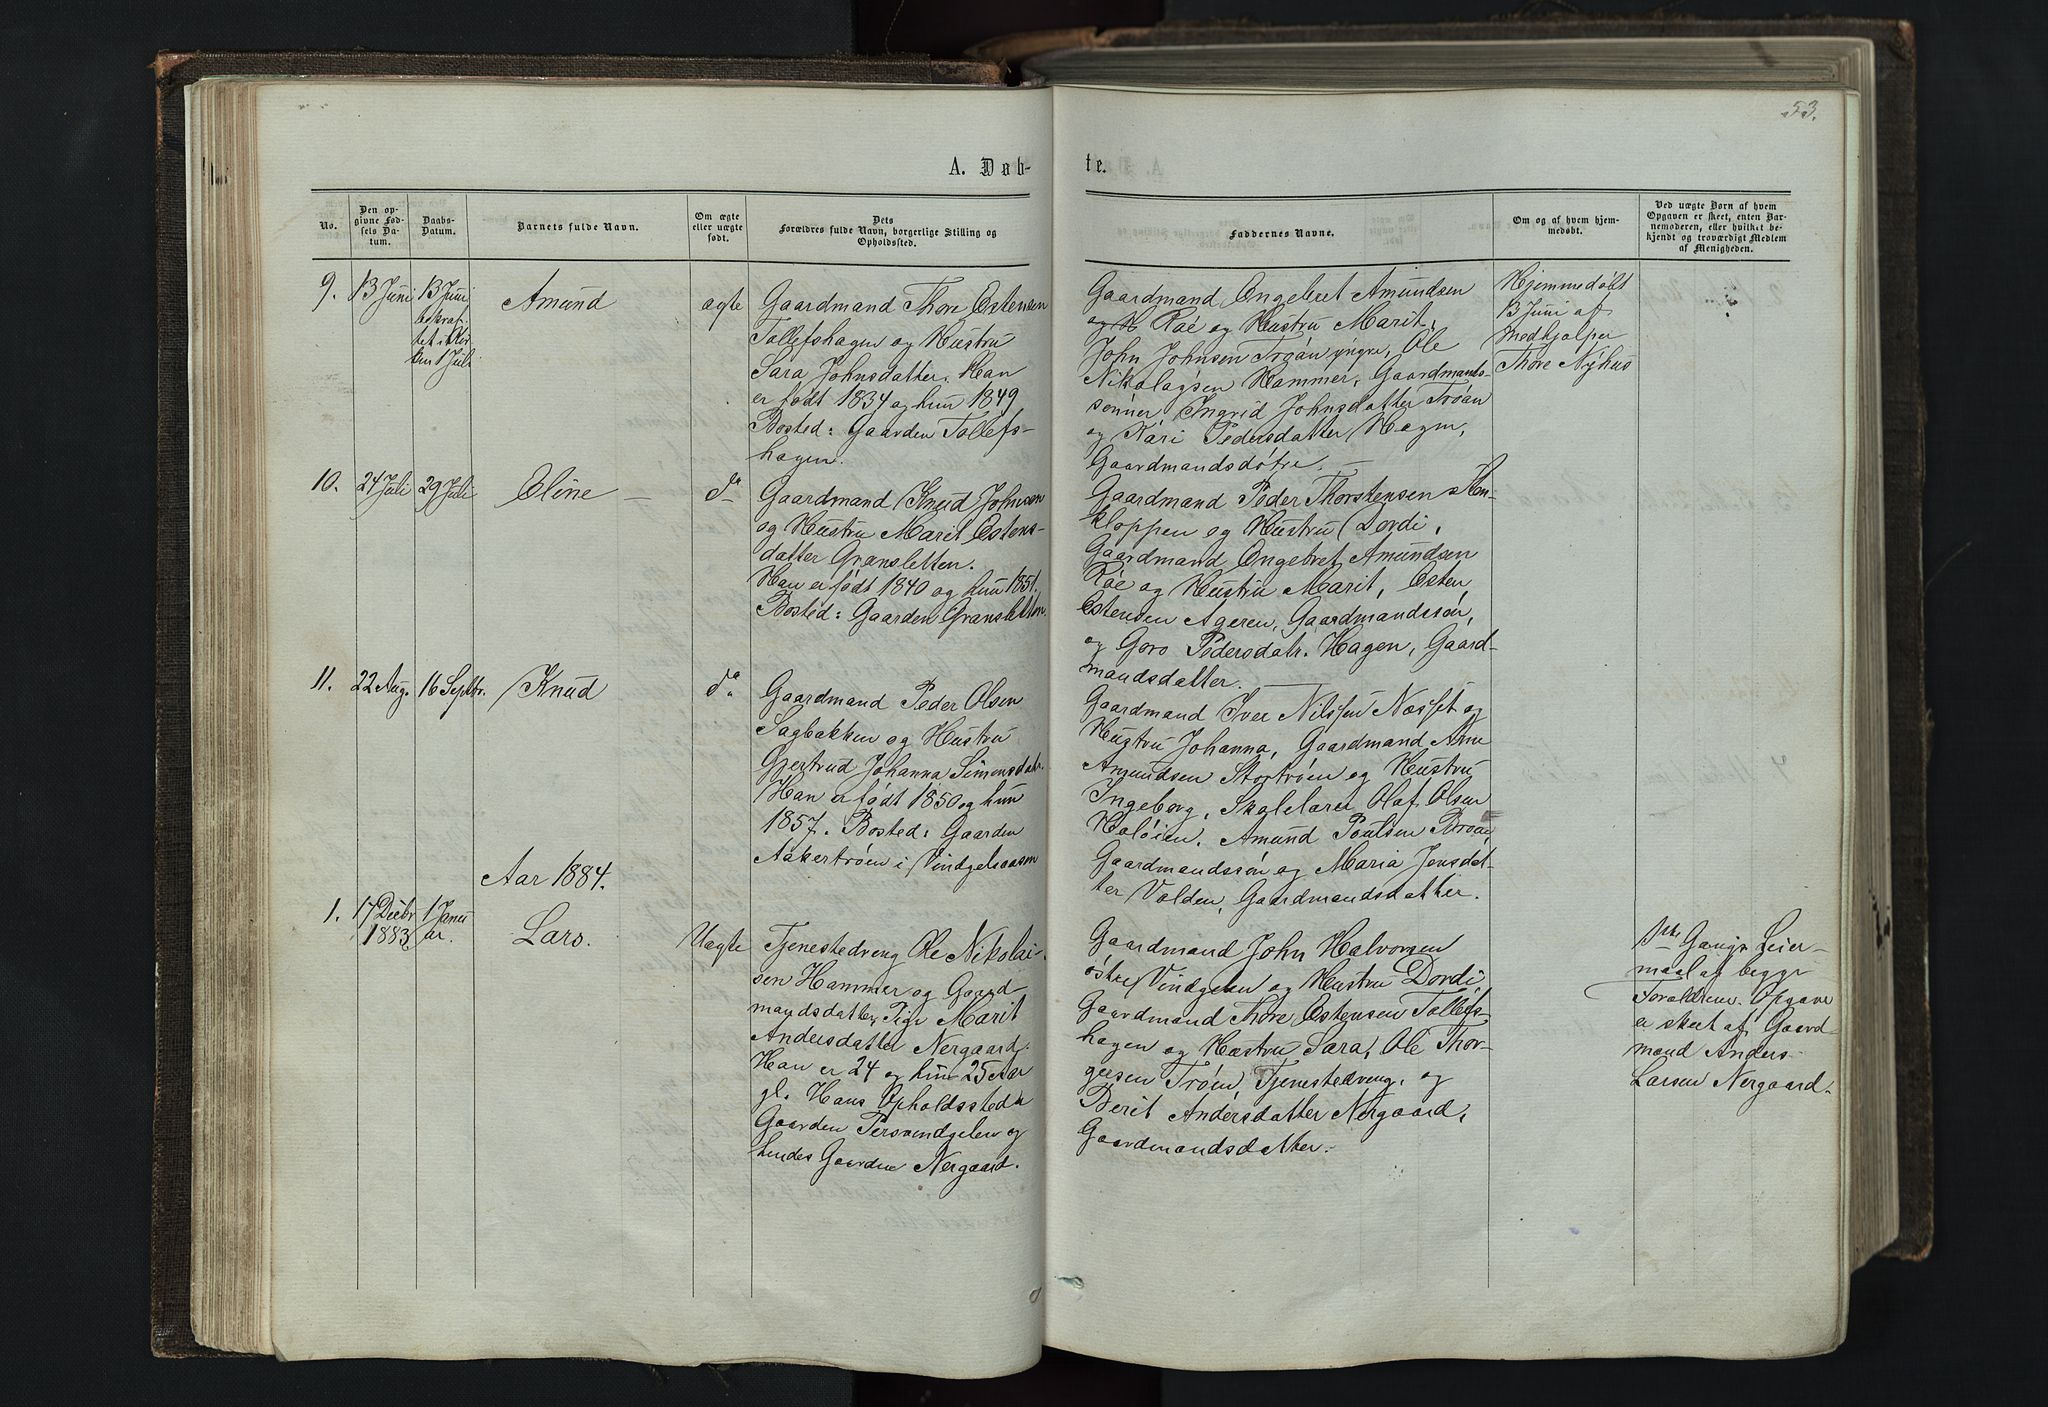 53.
A. Døb-
te.
No.
Den op-
givne Fød-
sels Da-
tum.
Daabs-
Datum.
Barnets fulde Navn.
Om ægte
eller uægte
født.
Dets
Forældres fulde Navn, borgerlige Stilling og
Opholdssted.
Faddernes Navne.
Om og af hvem hjem-
medøbt.
Ved uægte Børn af hvem
Opgaven er skeet, enten Bar-
nemoderen, eller hvilket be-
kjendt og troværdigt Medlem
af Menigheden.
9.
13 Juni
13 Juni
bekræf-
tet i Kir
ken 1 Juli
Amund
ægte
Gaardmand Thore Estensen
Tollefshagen og Hustru
Sara Johnsdatter. Han
er født 1834 og hun 1849
Bosted: Gaarden Tollefs-
hagen.
Gaardmand Engebret Amundsen
og Røe og Hustru Marit,
John Johnsen Trøan yngre, Ole
Nikolaysen Hammer, Gaardmands-
sønner, Ingrid Johnsdatter Trøan
og Kari Pedersdatter Hagen,
Gaardmandsdøtre. —
Hjemmedøbt
13 Juni af
Medhjælper
Thore Nyhus
10.
24 Juli
29 Juli
Eline —
do
Gaardmand Knud Johnsen
og Hustru Marit Estens-
datter Gransletten.
Han er født 1840 og hun 1851.
Bosted: Gaarden Gransletten.
Gaardmand Peder Thorstensen Sten-
kloppen og Hustru Dordi,
Gaardmand Engebret Amundsen
Røe og Hustru Marit, Esten
Estensen Ageren, Gaardmandssøn,
og Goro Pedersdatr. Hagen, Gaard-
mandsdatter. —
11.
22 Aug.
16 Septbr.
Knud
do
Gaardmand Peder Olsen
Sagbakken og Hustru
Gjertrud Johanna Simensdatr.
Han er født 1850 og hun
1857. Bosted: Gaarden
Aakertrøen i Vindgelsaasen
Gaardmand Iver Nilssen Næsset og
Hustru Johanna, Gaardmand Arne
Amundsen Stortrøen og Hustru
Ingeborg, Skolelærer Olaf Olsen
Holøien, Amund Poulsen Broen,
Gaardmandssøn og Maria Jensdat-
ter Volden, Gaardmandsdatter.
Aar 1884.
1.
17 Decbr
1883
1 Janu
ar.
Lars.
Uægte
Tjenestedreng Ole Nikolai-
sen Hammer og Gaard
mandsdatter, Pige Marit
Andersdatter Nergaard.
Han er 24 og hun 25 Aar
gl. Hans Opholdssted er
Gaarden Persvindgelen og
hendes Gaarden Nergaard.
Gaardmand John Halvorsen
østre Vindgelen og Hustru Dordi,
Gaardmand Thore Estensen Tollefs-
hagen og Hustru Sara, Ole Thor-
gersen Trøen, Tjenestedreng, og
Berit Andersdatter Nergaard,
Gaardmandsdatter.
1ste Gangs Leier-
maal af begge
Forældrene. Opgave
er skeet af Gaard-
mand Anders
Larsen Nergaard.